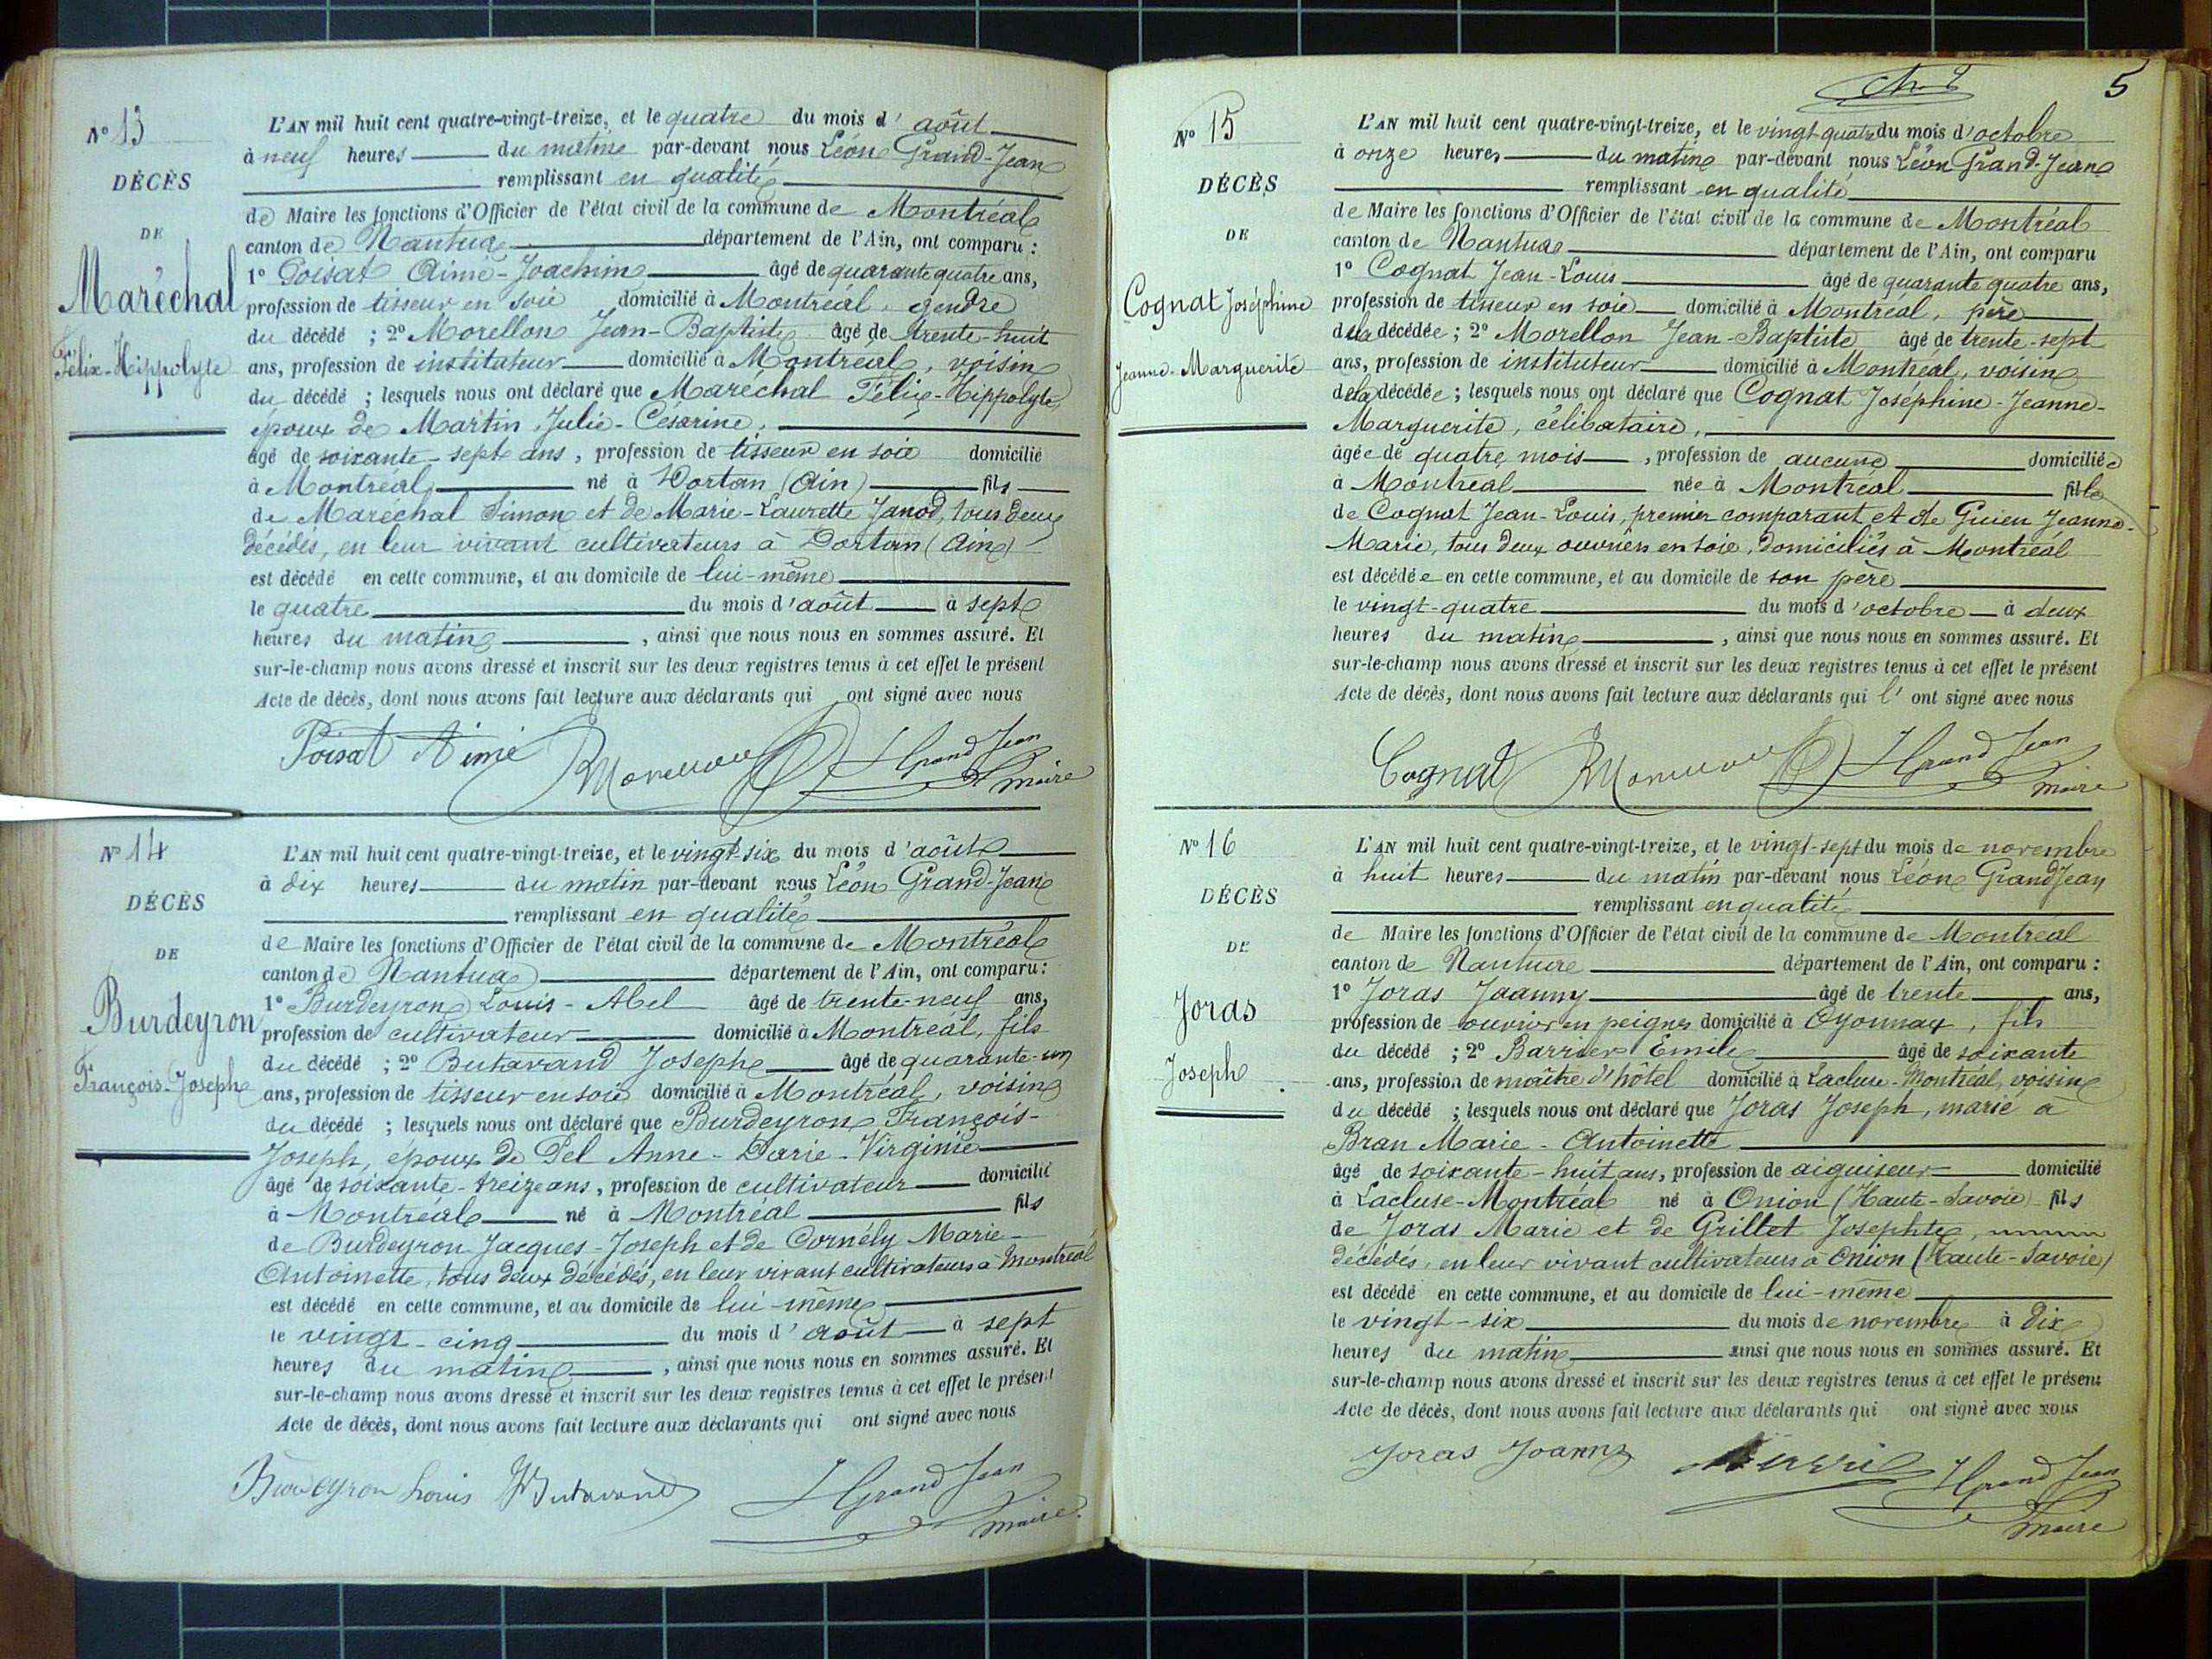 N° 13
DÉCÈS
DE
Maréchal
Félix-Hippolyte
L'AN mil huit cent quatre-vingt-treize, et le quatre du mois d'août
à neuf heures du matin par-devant nous Léon Grand-Jean
remplissant en qualité
de Maire les fonctions d'Officier de l'état civil de la commune de Montréal
canton de Nantua département de l'Ain, ont comparu :
1° Poisat Aimé-Joachim âgé de quarante quatre ans,
profession de tisseur en soie domicilié à Montréal, gendre
du décédé ; 2° Morellon Jean-Baptiste âgé de trente-huit
ans, profession de instituteur domicilié à Montréal, voisin
du décédé ; lesquels nous ont déclaré que Maréchal Félix-Hippolyte,
époux de Martin Julie-Césarine,
âgé de soixante-sept ans, profession de tisseur en soie domicilié
à Montréal né à Dortan (Ain) fils
de Maréchal Simon et de Marie-Laurette Janod, tous deux
décédés, en leur vivant cultivateurs à Dortan (Ain)
est décédé en cette commune, et au domicile de lui-même
le quatre du mois d'août à sept
heures du matin, ainsi que nous nous en sommes assuré. Et
sur-le-champ nous avons dressé et inscrit sur les deux registres tenus à cet effet le présent
Acte de décès, dont nous avons fait lecture aux déclarants qui ont signé avec nous
Poisat Aimé Morellon LGrand Jean
maire
N° 14
DÉCÈS
DE
Burdeyron
François-Joseph
L'AN mil huit cent quatre-vingt-treize, et le vingt-six du mois d'août
à dix heures du matin par-devant nous Léon Grand-Jean
remplissant en qualité
de Maire les fonctions d'Officier de l'état civil de la commune de Montréal
canton de Nantua département de l'Ain, ont comparu :
1° Burdeyron Louis-Abel âgé de trente-neuf ans,
profession de cultivateur domicilié à Montréal, fils
du décédé ; 2° Butavand Joseph âgé de quarante-un
ans, profession de tisseur en soie domicilié à Montréal, voisin
du décédé ; lesquels nous ont déclaré que Burdeyron François-
Joseph, époux de Pel Anne-Darie-Virginie
âgé de soixante-treize ans, profession de cultivateur domicilié
à Montréal né à Montréal fils
de Burdeyron Jacques-Joseph et de Cornély Marie-
Antoinette, tous deux décédés, en leur vivant cultivateurs à Montréal
est décédé en cette commune, et au domicile de lui-même
le vingt-cinq du mois d'août à sept
heures du matin, ainsi que nous nous en sommes assuré. Et
sur-le-champ nous avons dressé et inscrit sur les deux registres tenus à cet effet le présent
Acte de décès, dont nous avons fait lecture aux déclarants qui ont signé avec nous
Burdeyron Louis JButavand LGrand Jean
maire
5
N° 15
DÉCÈS
DE
Cognat Joséphine
Jeanne-Marguerite
L'AN mil huit cent quatre-vingt-treize, et le vingt-quatre du mois d'octobre
à onze heures du matin par-devant nous Léon Grand-Jean
remplissant en qualité
de Maire les fonctions d'Officier de l'état civil de la commune de Montréal
canton de Nantua département de l'Ain, ont comparu
1° Cognat Jean-Louis âgé de quarante quatre ans,
profession de tisseur en soie domicilié à Montréal, père
de la décédée ; 2° Morellon Jean-Baptiste âgé de trente-sept
ans, profession de instituteur domicilié à Montréal, voisin
de la décédée ; lesquels nous ont déclaré que Cognat Joséphine-Jeanne-
Marguerite, célibataire,
âgée de quatre mois, profession de aucune domiciliée
à Montréal née à Montréal fille
de Cognat Jean-Louis, premier comparant et de Guien Jeanne-
Marie, tous deux ouvriers en soie, domiciliés à Montréal
est décédée en cette commune, et au domicile de son père
le vingt-quatre du mois d'octobre à deux
heures du matin, ainsi que nous nous en sommes assuré. Et
sur-le-champ nous avons dressé et inscrit sur les deux registres tenus à cet effet le présent
Acte de décès, dont nous avons fait lecture aux déclarants qui l'ont signé avec nous
Cognat Morellon LGrand Jean
maire
N° 16
DÉCÈS
DE
Joras
Joseph
L'AN mil huit cent quatre-vingt-treize, et le vingt-sept du mois de novembre
à huit heures du matin par-devant nous Léon GrandJean
remplissant en qualité
de Maire les fonctions d'Officier de l'état civil de la commune de Montréal
canton de Nantua département de l'Ain, ont comparu :
1° Joras Joanny âgé de trente ans,
profession de ouvrier en peignes domicilié à Oyonnax, fils
du décédé ; 2° Barrier Emile âgé de soixante
ans, profession de maître d'hôtel domicilié à Lacluse-Montréal, voisin
du décédé ; lesquels nous ont déclaré que Joras Joseph, marié à
Bran Marie-Antoinette
âgé de soixante-huit ans, profession de aiguiseur domicilié
à Lacluse-Montréal né à Onion (Haute-Savoie) fils
de Joras Marie et de Grillet Josephte,
décédés, en leur vivant cultivateurs à Onion (Haute-Savoie)
est décédé en cette commune, et au domicile de lui-même
le vingt-six du mois de novembre à dix
heures du matin ainsi que nous nous en sommes assuré. Et
sur-le-champ nous avons dressé et inscrit sur les deux registres tenus à cet effet le présent
Acte de décès, dont nous avons fait lecture aux déclarants qui ont signé avec nous
Joras Joanny LGrand Jean
maire